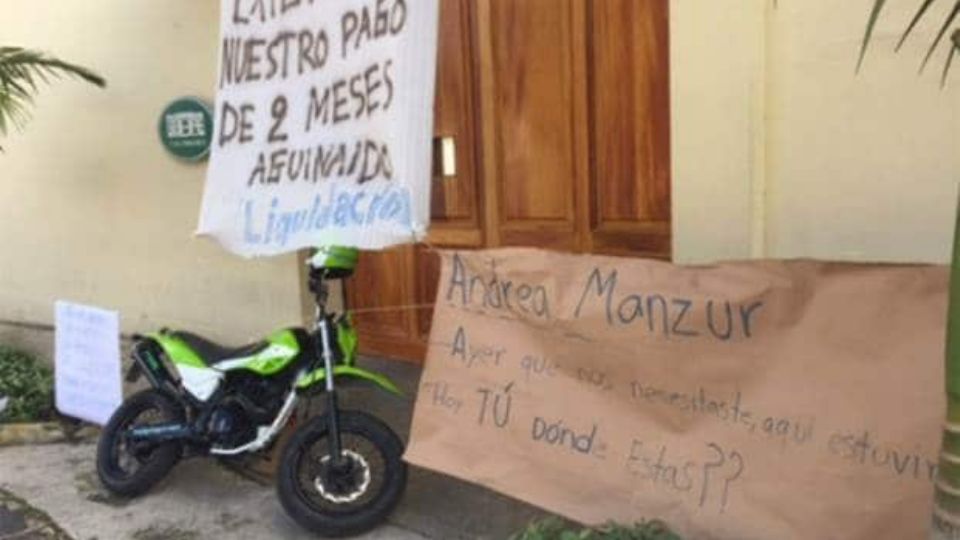 NUESTRO PAGO
DE 2 MESES
AGUINALDO
Liquidación
Andrea Manzur
Ayer que nos necesitaste, aquí estuvim
Hoy TÚ dónde Estas??